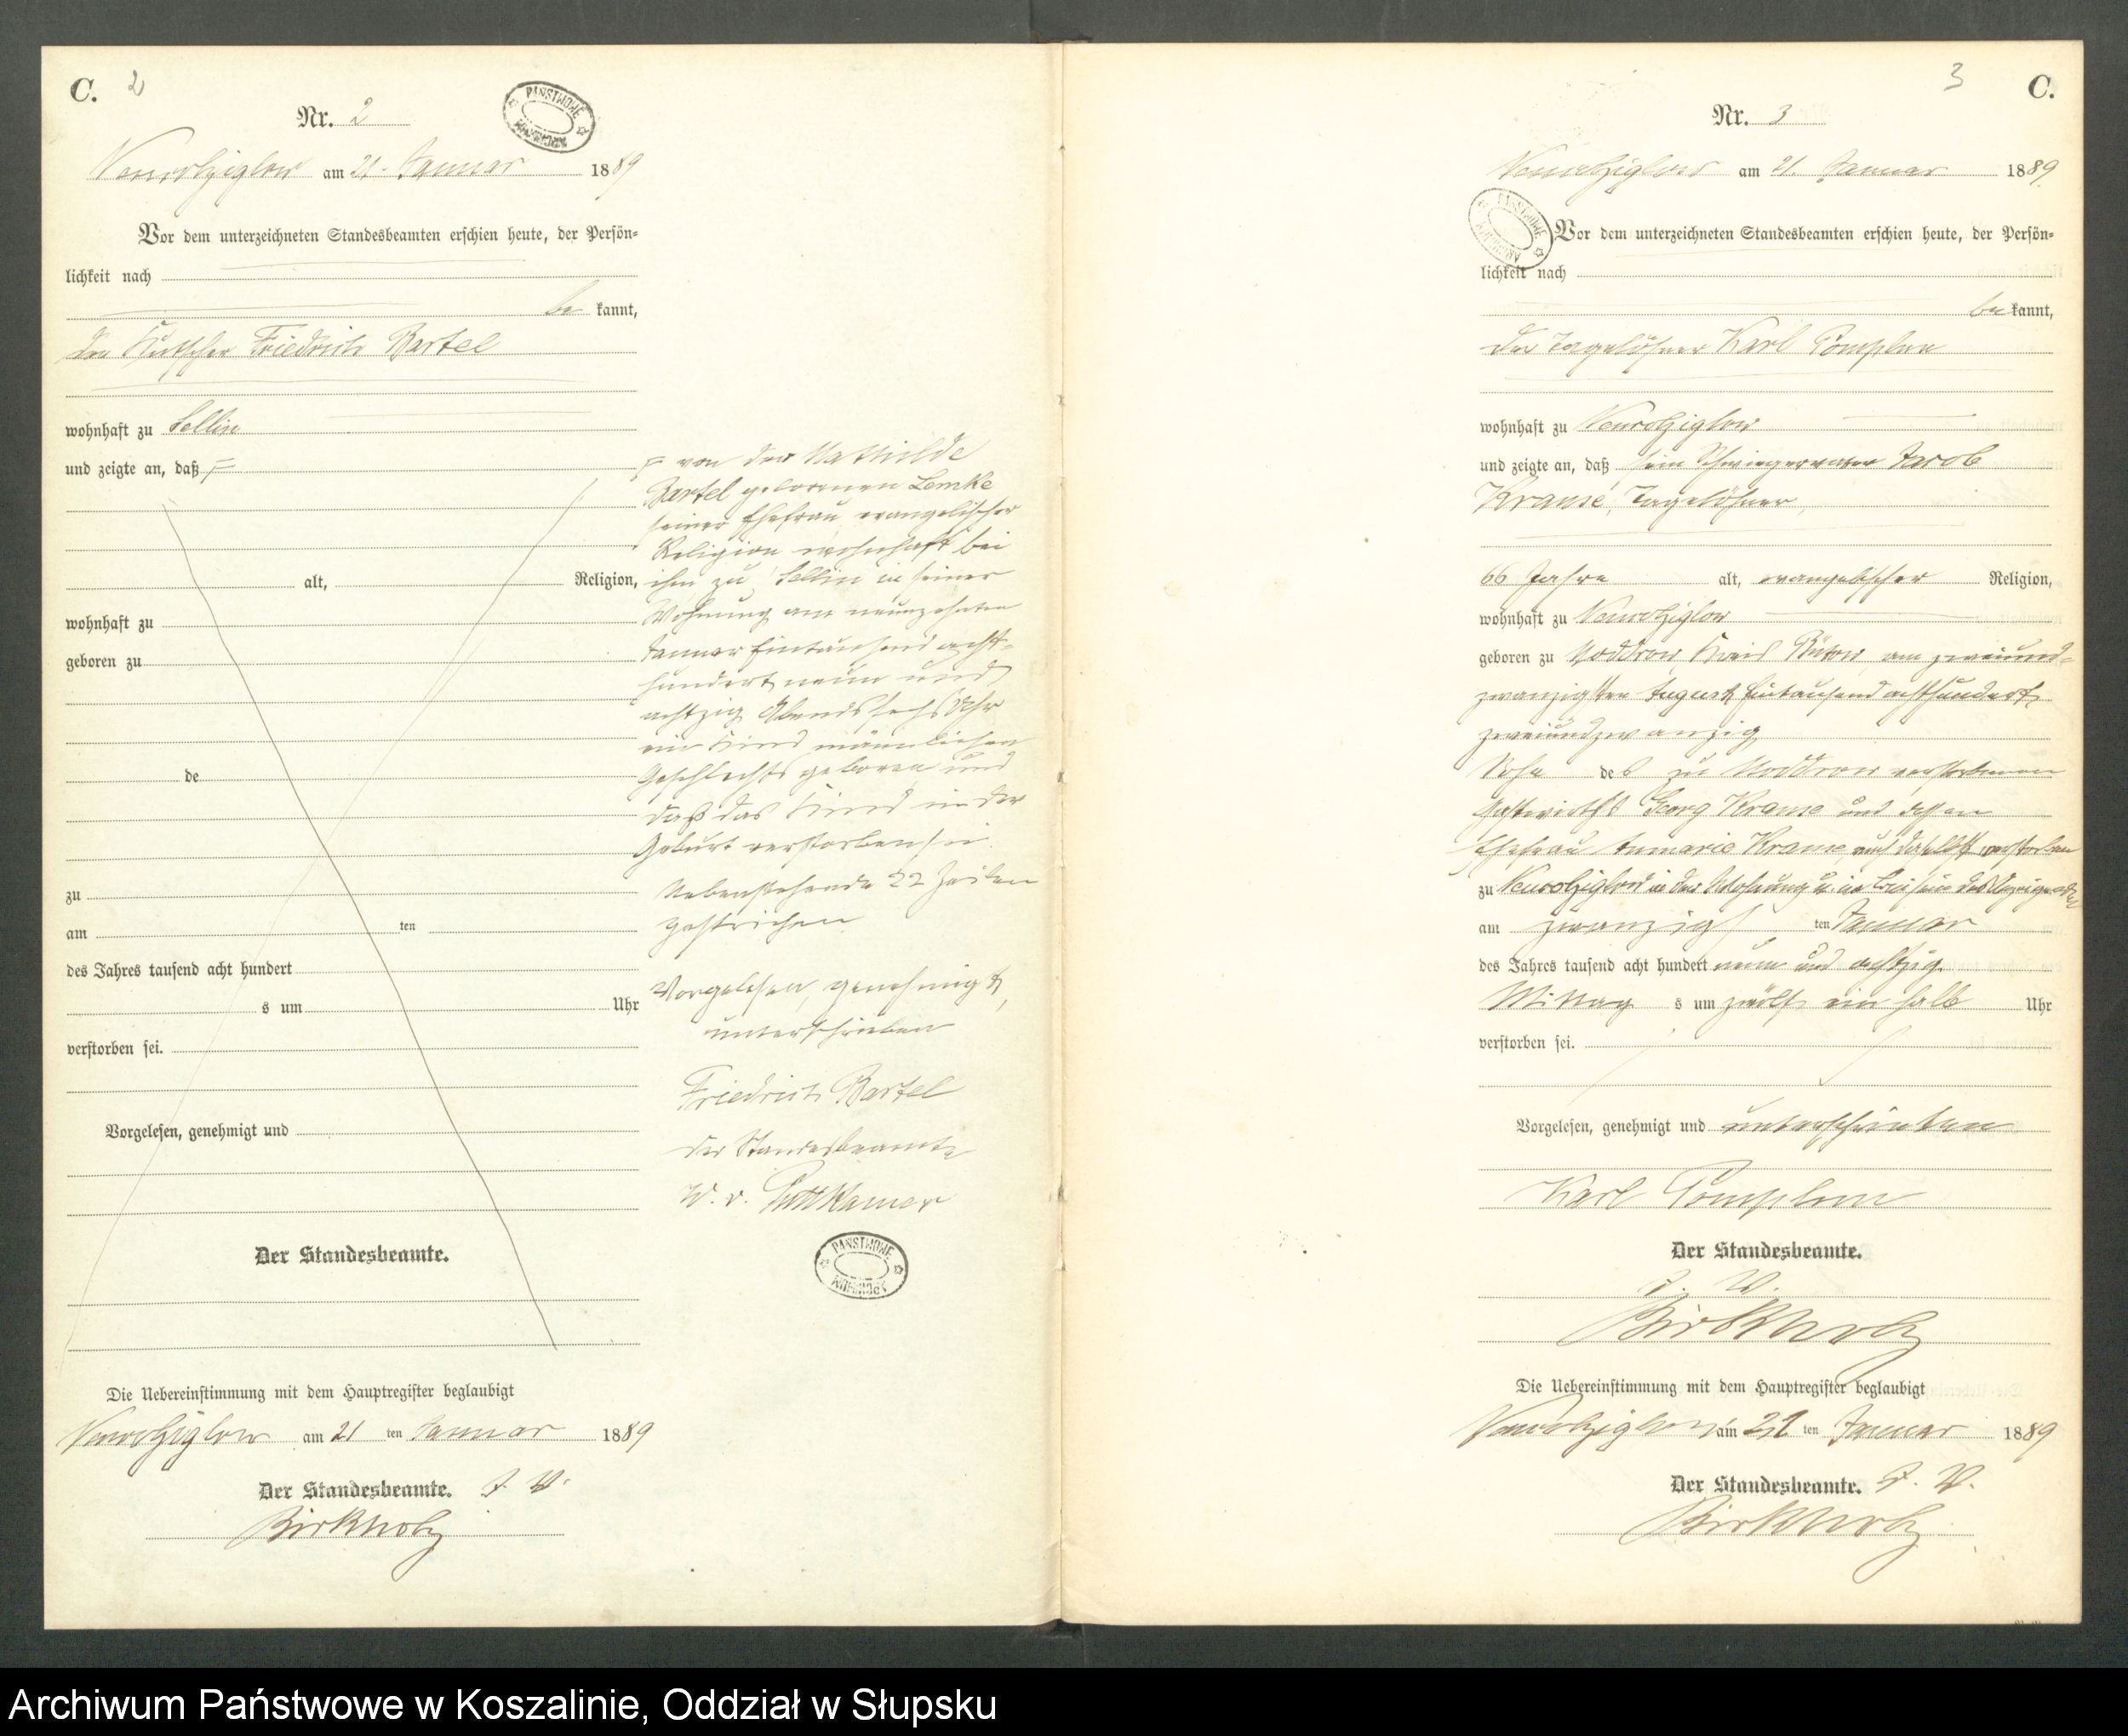 C. 2
Nr. 2
PANSTWOWE ARCHIWUM
Neurolziglow am 21. Januar 1889
Vor dem unterzeichneten Standesbeamten erschien heute, der Persön-
lichkeit nach
be kannt,
den Kutscher Friedrich Bartel
wohnhaft zu Sellin
und zeigte an, daß
alt, Religion,
wohnhaft zu
geboren zu
de
zu
am ten
des Jahres tausend acht hundert
s um Uhr
verstorben sei.
Vorgelesen, genehmigt und
Der Standesbeamte.
von der Mathilde
Bartel geborenen Lemke
seiner Ehefrau evangelischer
Religion wohnhaft bei
ihm zu Sellin in seiner
Wohnung am neunzehnten
Januar Eintausend acht-
hundert neun und
achtzig Abends sechs Uhr
ein Kind männlichen
Geschlechts geboren und
daß das Kind in der
Geburt verstorben sei.
Nebenstehende 22 Zeilen
gestrichen
Vorgelesen, genehmigt,
unterschrieben
Friedrich Bartel
Der Standesbeamte
W. v. Puttkamer
PANSTWOWE ARCHIWUM
Die Uebereinstimmung mit dem Hauptregister beglaubigt
Neurolziglow am 21 ten Januar 1889
Der Standesbeamte. J. V.
Birkholz
3 C.
Nr. 3
Neurolziglow am 21. Januar 1889
PANSTWOWE ARCHIWUM
Vor dem unterzeichneten Standesbeamten erschien heute, der Persön-
lichkeit nach
be kannt,
der Tagelöhner Karl Pomplun
wohnhaft zu Neurolziglow
und zeigte an, daß sein Schwiegervater Jacob
Krause, Tagelöhner,
66 Jahre alt, evangelischer Religion,
wohnhaft zu Neurolziglow
geboren zu Moddrow, Kreis Bütow am zweiund-
zwanzigsten August Eintausend achthundert
zweiundzwanzig
Sohn des zu Moddrow verstorbenen
Gastwirths Georg Krause und dessen
Ehefrau Annmarie Krause, auch daselbst verstorben
zu Neurolziglow in der Wohnung u. im Beisein des Anzeigenden
am zwanzigsten Januar
des Jahres tausend acht hundert neun und achtzig
Mittag s um zwölf ein halb Uhr
verstorben sei.
Vorgelesen, genehmigt und unterschrieben
Karl Pomplun
Der Standesbeamte.
J. V.
Birkholz
Die Uebereinstimmung mit dem Hauptregister beglaubigt
Neurolziglow am 21 ten Januar 1889
Der Standesbeamte. J. V.
Birkholz
Archiwum Państwowe w Koszalinie, Oddział w Słupsku